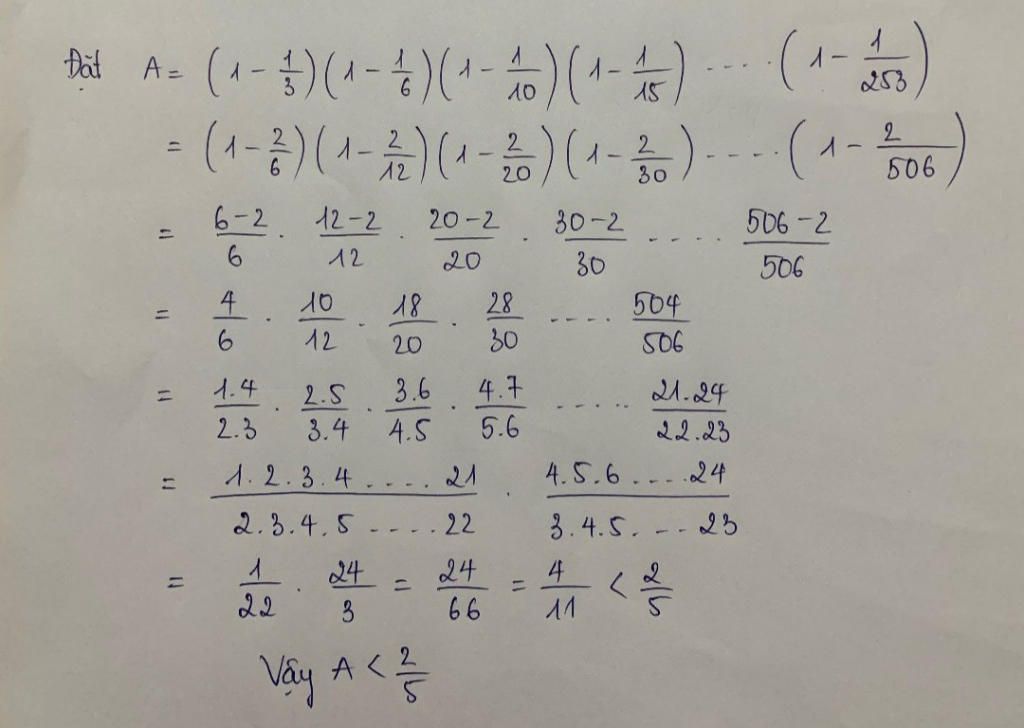 Đặt A = (1 - 1/3)(1 - 1/6)(1 - 1/10)(1 - 1/15) ..... (1 - 1/253)
= (1 - 2/6)(1 - 2/12)(1 - 2/20)(1 - 2/30) ..... (1 - 2/506)
= (6-2)/6 . (12-2)/12 . (20-2)/20 . (30-2)/30 ..... (506-2)/506
= 4/6 . 10/12 . 18/20 . 28/30 ..... 504/506
= 1.4/2.3 . 2.5/3.4 . 3.6/4.5 . 4.7/5.6 ..... 21.24/22.23
= 1.2.3.4.....21/2.3.4.5.....22 . 4.5.6.....24/3.4.5.....23
= 1/22 . 24/3 = 24/66 = 4/11 < 2/5
Vậy A < 2/5